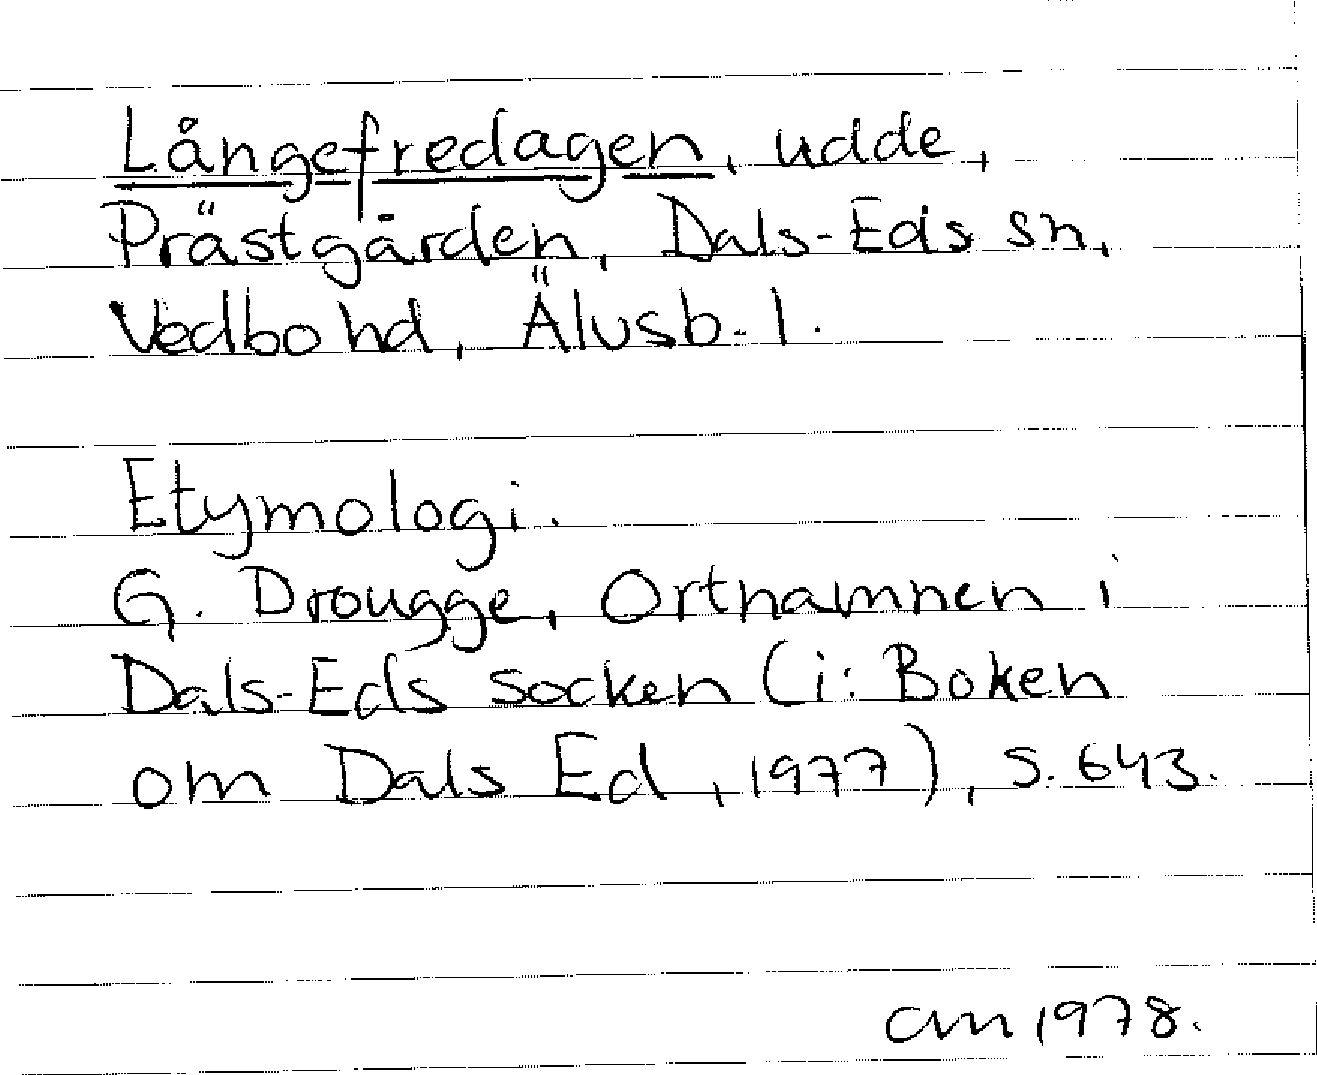 Långefredagen, udde,
Prästgården, Dals-Eds sn,
Vedbo hd, Älvsb. l.
Etymologi.
G. Drougge, Ortnamnen i
Dals-Eds socken (i: Boken
om Dals Ed, 1977), s. 643.
am 1978.